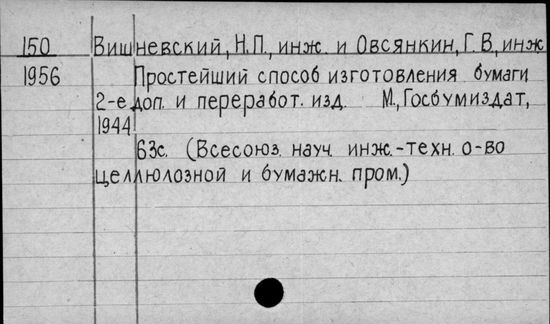 150 Вишневский, Н.П., инж. и Овсянкин, Г.В, инж
1956 Простейший способ изготовления бумаги
2-е доп. и переработ. изд. М., Госбумиздат,
1944
63с. (Всесоюз. науч. инж.-техн. о-во
целлюлозной и бумажн. пром.)